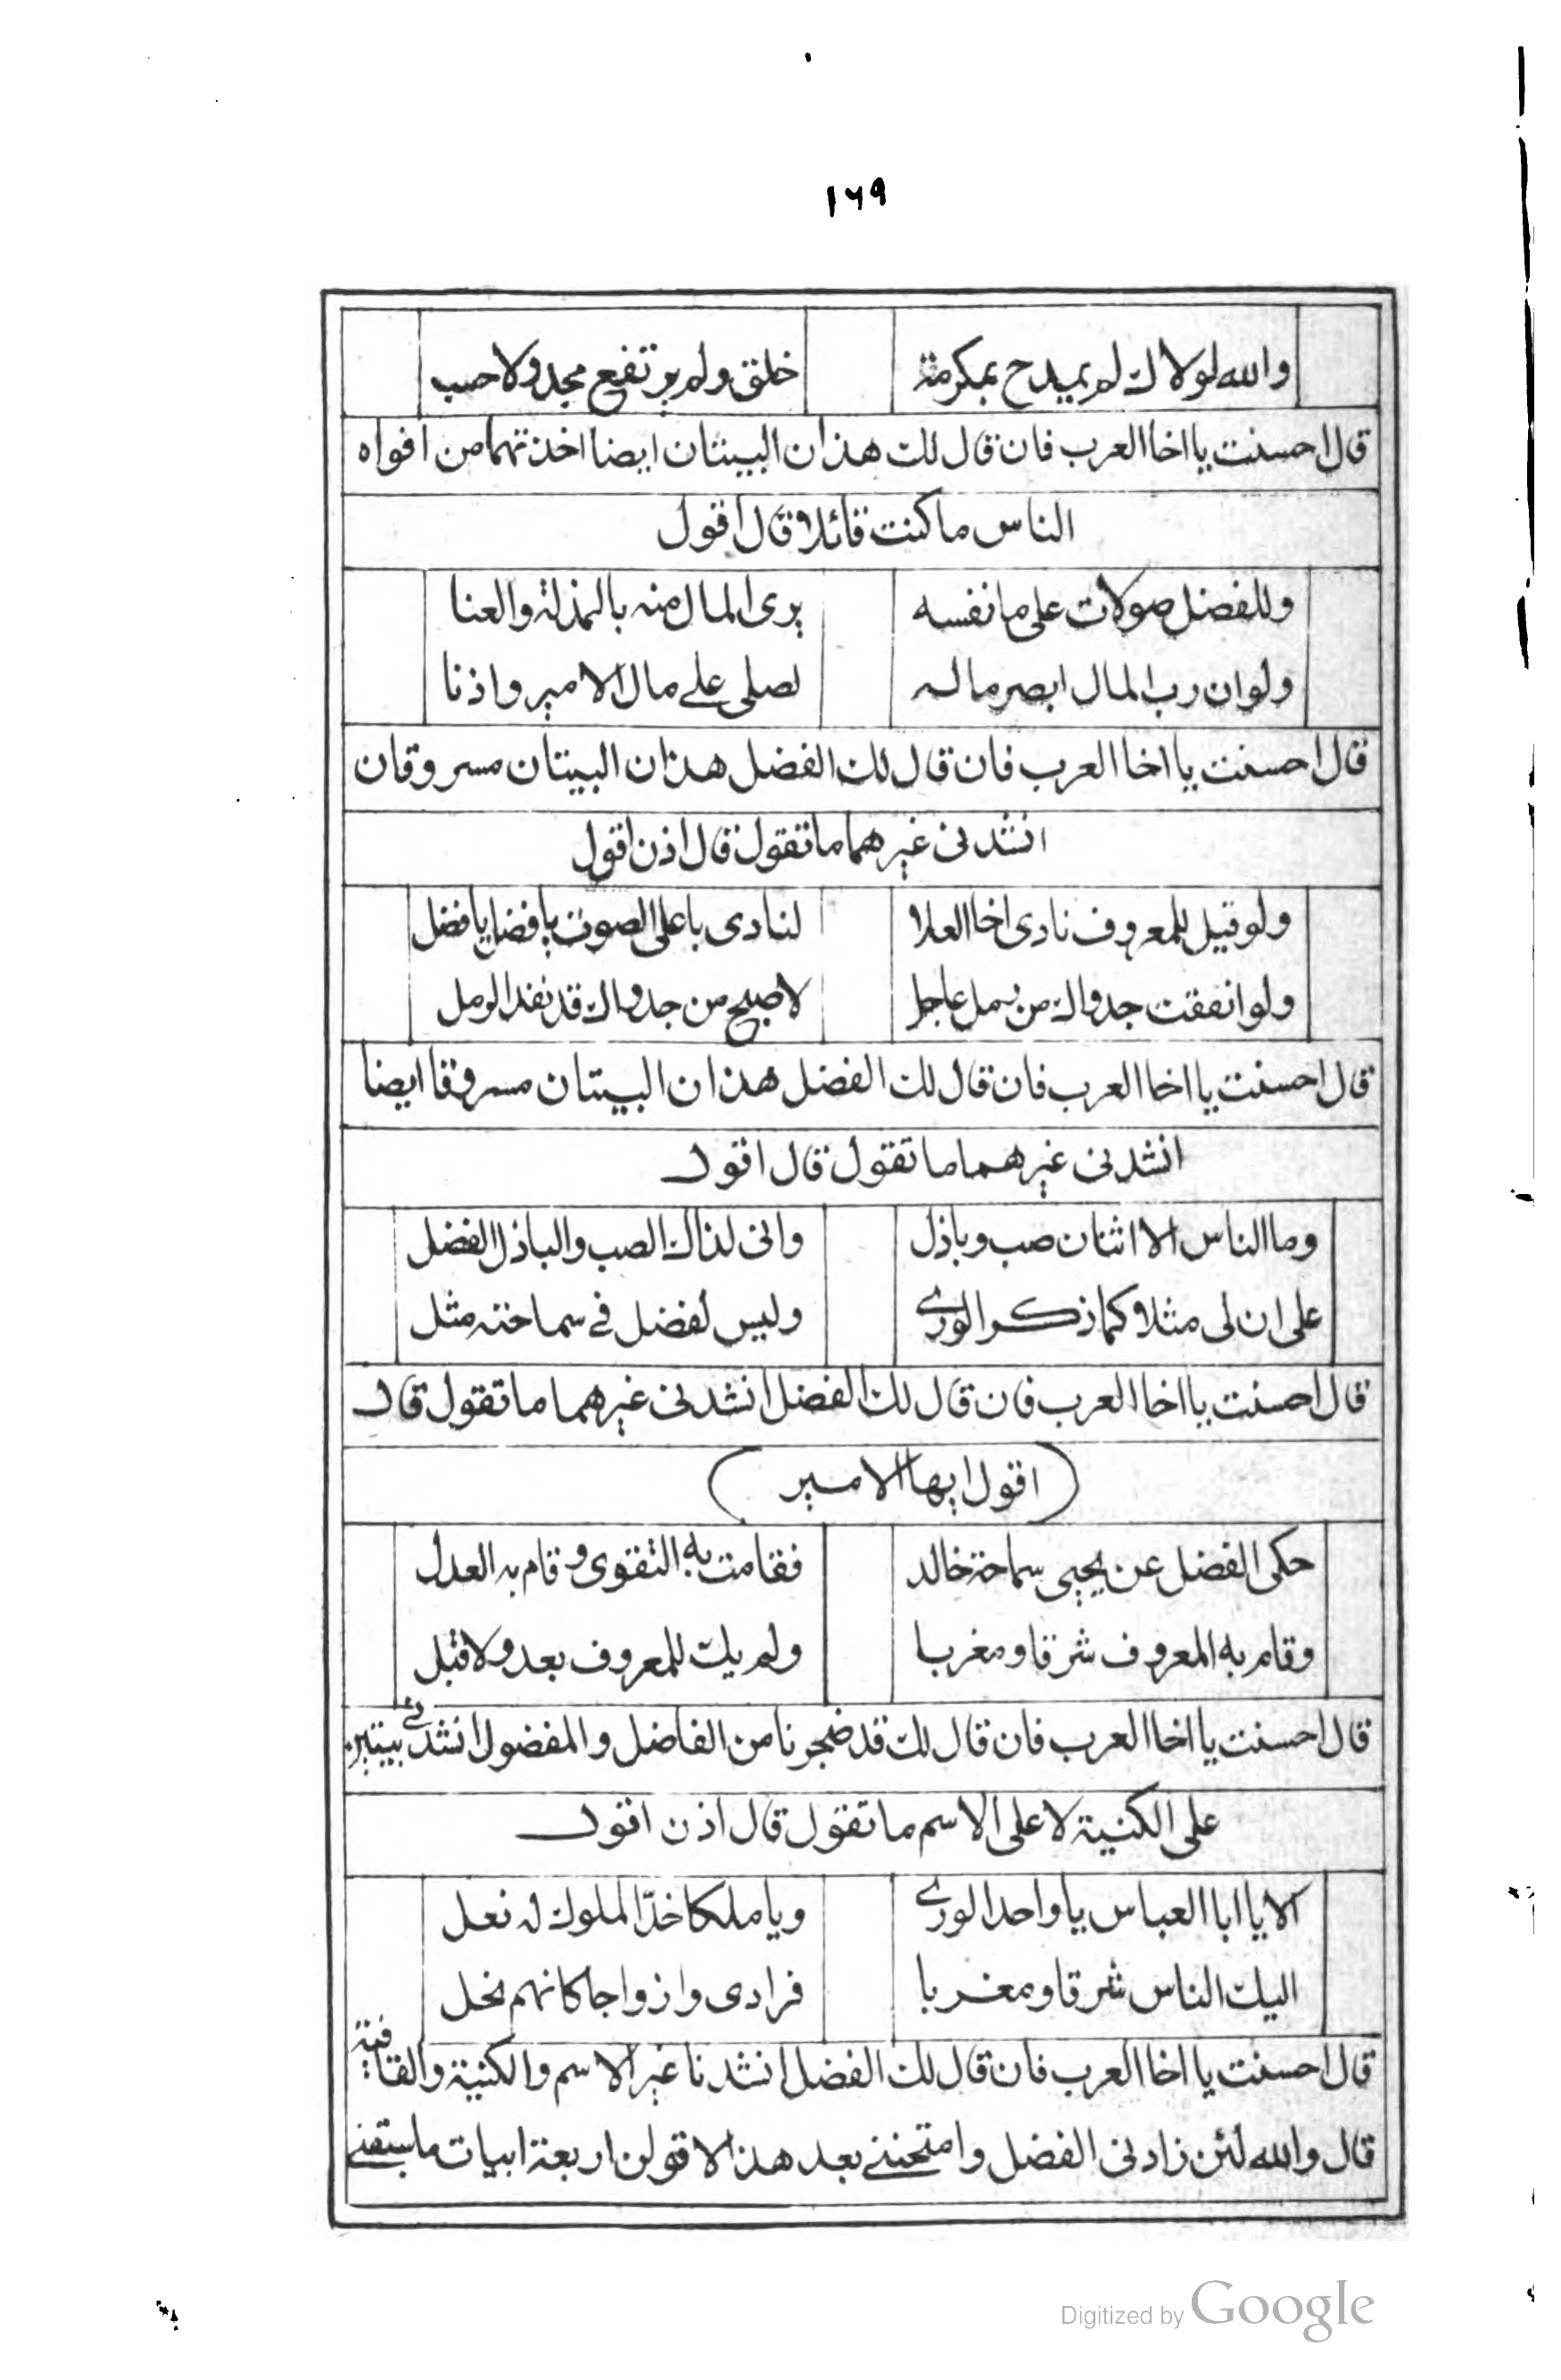 ١٦٩
والله لولاك لم يمدح بمكرمة خلق ولم يرتفع مجد ولا حسب
قال احسنت يا اخا العرب فان قال لك هذان البيتان ايضا اخذتهما من افواه
الناس ما كنت قائلا قال اقول
وللفضل صولات على ما نفسه يرى المال منه بالمذلة والعنا
ولو ان رب المال ابصر ماله لصلى على مال الامير واذنا
قال احسنت يا اخا العرب فان قال لك الفضل هذان البيتان مسروقان
انشدنى غيرهما ما تقول قال اذن اقول
ولو قيل للمعروف نادى اخا العلا لنادى باعلى الصوت يا فضل يا فضل
ولو انفقت جدواك من رمل عالج لاصبح من جدواك قد نفد الرمل
قال احسنت يا اخا العرب فان قال لك الفضل هذان البيتان مسروقا ايضا
انشدنى غيرهما ما تقول قال اقول
وما الناس الا اثنان صب وباذل وانى لذاك الصب والباذل الفضل
على ان لى مثلا كما ذكر الورى وليس لفضل فى سماحته مثل
قال احسنت يا اخا العرب فان قال لك الفضل انشدنى غيرهما ما تقول قال
(اقول ايها الامير)
حكى الفضل عن يحيى سماحة خالد فقامت به التقوى وقام به العدل
وقام به المعروف شرقا ومغربا ولم يك للمعروف بعد ولا قبل
قال احسنت يا اخا العرب فان قال لك قد ضجرنا من الفاضل والمفضول انشدنى بيتين
على الكنية لا على الاسم ما تقول قال اذن اقول
الا يا ابا العباس يا واحد الورى ويا ملكا خد الملوك له نعل
اليك الناس شرقا ومغربا فرادى وازواجا كانهم نحل
قال احسنت يا اخا العرب فان قال لك الفضل انشدنا غير الاسم والكنية والقافية
قال والله لئن زادنى الفضل وامتحننى بعد هذا لاقولن اربعة ابيات ما سبقنى
Digitized by Google